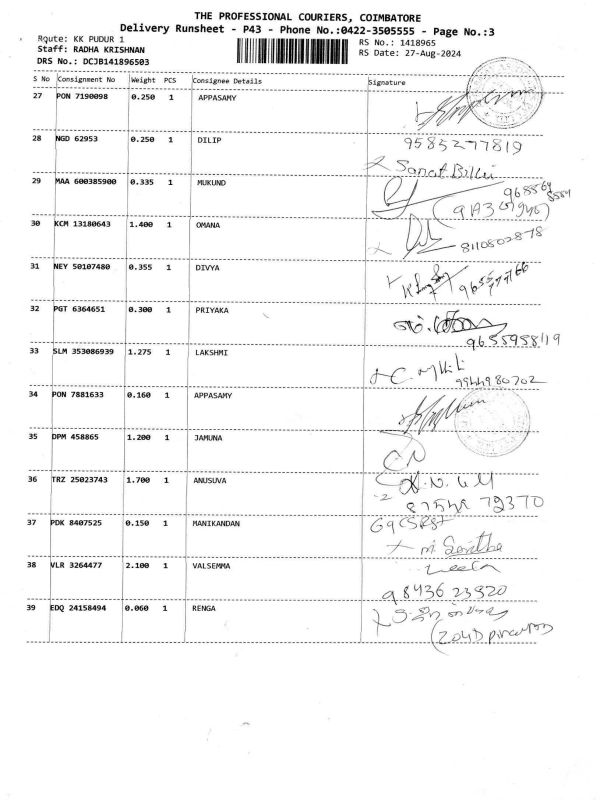 THE PROFESSIONAL COURIERS, COIMBATORE
Delivery Runsheet - P43 - Phone No.:0422-3505555 - Page No.:3
Route: KK PUDUR 1
Staff: RADHA KRISHNAN
DRS No.: DCJB141896503
RS No.: 1418965
RS Date: 27-Aug-2024
S No Consignment No Weight PCS Consignee Details Signature
27 PON 7190098 0.250 1 APPASAMY
28 NGD 62953 0.250 1 DILIP 9585277819
29 MAA 600385900 0.335 1 MUKUND
30 KCM 13180643 1.400 1 OMANA 8110802878
31 NEY 50107480 0.355 1 DIVYA
32 PGT 6364651 0.300 1 PRIYAKA
9655958119
33 SLM 353086939 1.275 1 LAKSHMI
9944980702
34 PON 7881633 0.160 1 APPASAMY
35 DPM 458865 1.200 1 JAMUNA
36 TRZ 25023743 1.700 1 ANUSUVA
37 PDK 8407525 0.150 1 MANIKANDAN
38 VLR 3264477 2.100 1 VALSEMMA Leela
98436 23920
39 EDQ 24158494 0.060 1 RENGA